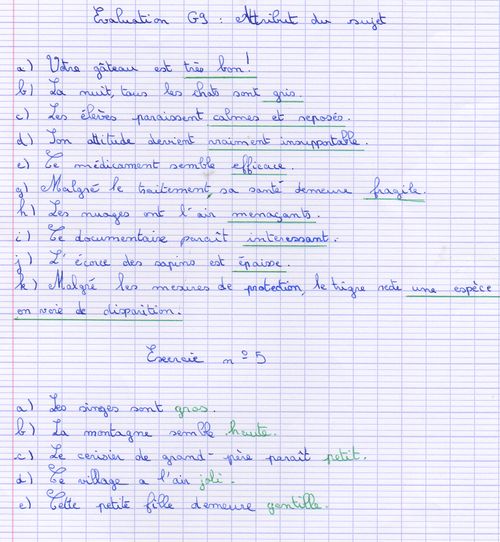 Evaluation G9 : Attribut du sujet
a) Votre gâteau est très bon !
b) La nuit, tous les chats sont gris.
c) Les élèves paraissent calmes et reposés.
d) Son attitude devient vraiment insupportable.
e) Ce médicament semble efficace.
g) Malgré le traitement, sa santé demeure fragile.
h) Les nuages ont l'air menaçants.
i) Ce documentaire paraît intéressant.
j) L'écorce des sapins est épaisse.
k) Malgré les mesures de protection, le tigre reste une espèce
en voie de disparition.
Exercice n°5
a) Les singes sont gros.
b) La montagne semble haute.
c) Le cerisier de grand-père paraît petit.
d) Ce village a l'air joli.
e) Cette petite fille demeure gentille.